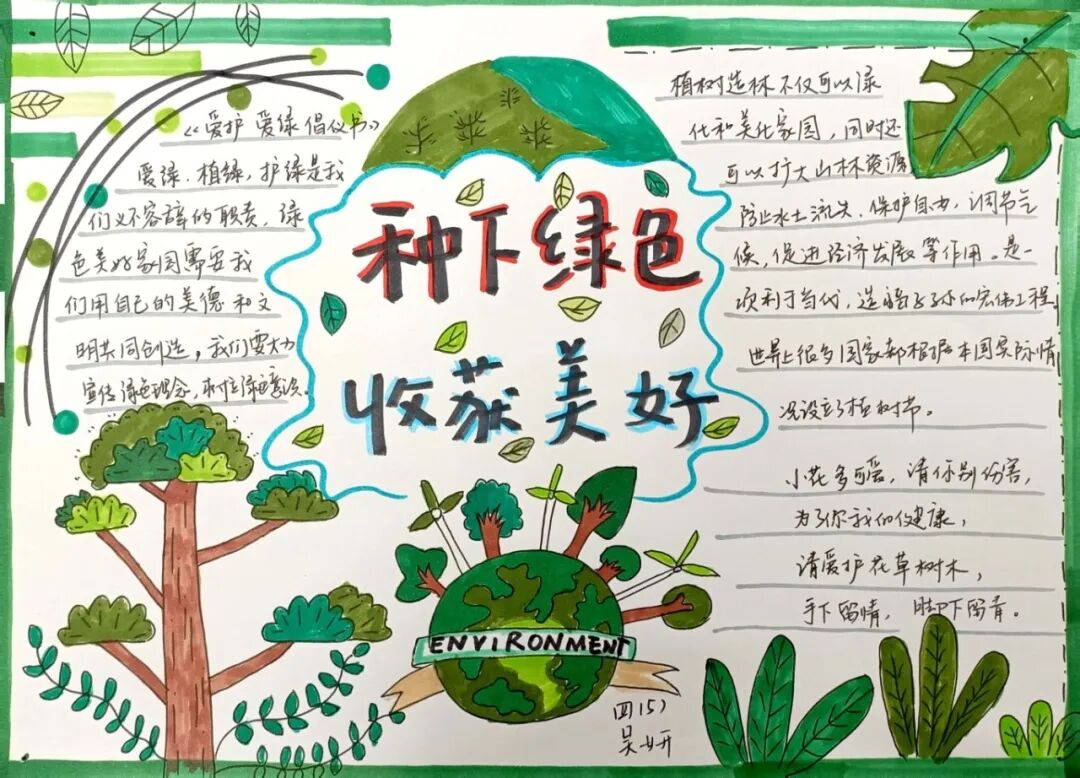 种下绿色
收获美好
《爱护 爱绿 倡议书》
爱绿、植绿,护绿是我
们义不容辞的职责,绿
色美好家园需要我
们用自己的美德和文
明共同创造,我们要大力
宣传绿色理念,树立绿色意识。
植树造林不仅可以绿
化和美化家园,同时还
可以扩大山林资源
防止水土流失、保护自由,调节气
候,促进经济发展等作用。是一
项利于当代,造福子孙的宏伟工程
世界上很多国家都根据本国实际情
况设立了植树节。
小花多可爱,请你别伤害,
为了你我们健康,
请爱护花草树木,
手下留情,脚下留青。
ENVIRONMENT
四(5)
吴妍